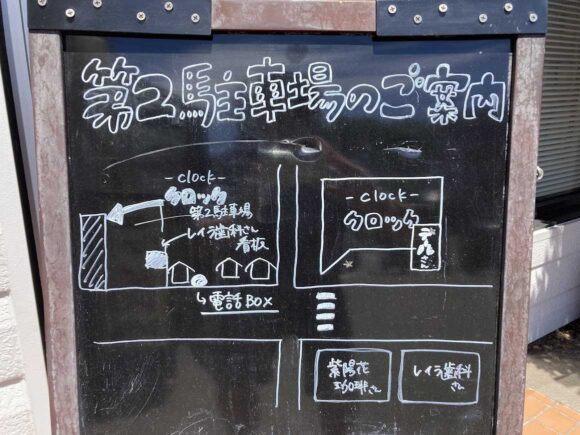 第2駐車場のご案内
-clock-
クロック
第2駐車場
レイラ歯科さん
看板
電話BOX
-clock-
クロック
さん
紫陽花
珈琲さん
レイラ歯科
さん